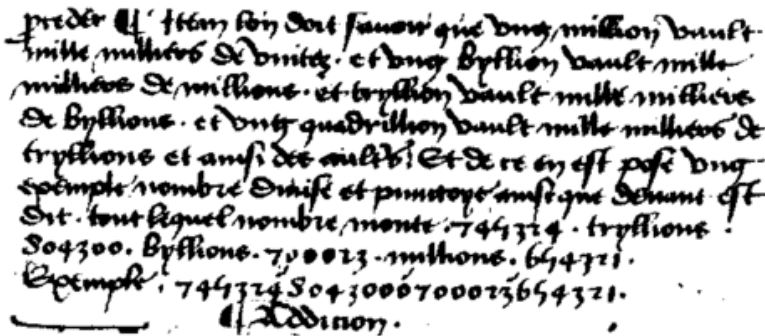 preceder ¶ Item lon doit savoir que ung million vault
mille milliers de unitez. et ung byllion vault mille
milliers de millions. et tryllion vault mille milliers
de byllions. et ung quadrillion vault mille milliers de
tryllions et ainsi des aultres. Et de ce en est pose ung
exemple nombre divise et punctoye ainsi que devant est
dit. tout lequel nombre monte. 745324. tryllions.
804300. byllions. 700023. millions. 654321.
Exemple. 745324'804300'700023'654321.
¶ Addicion.